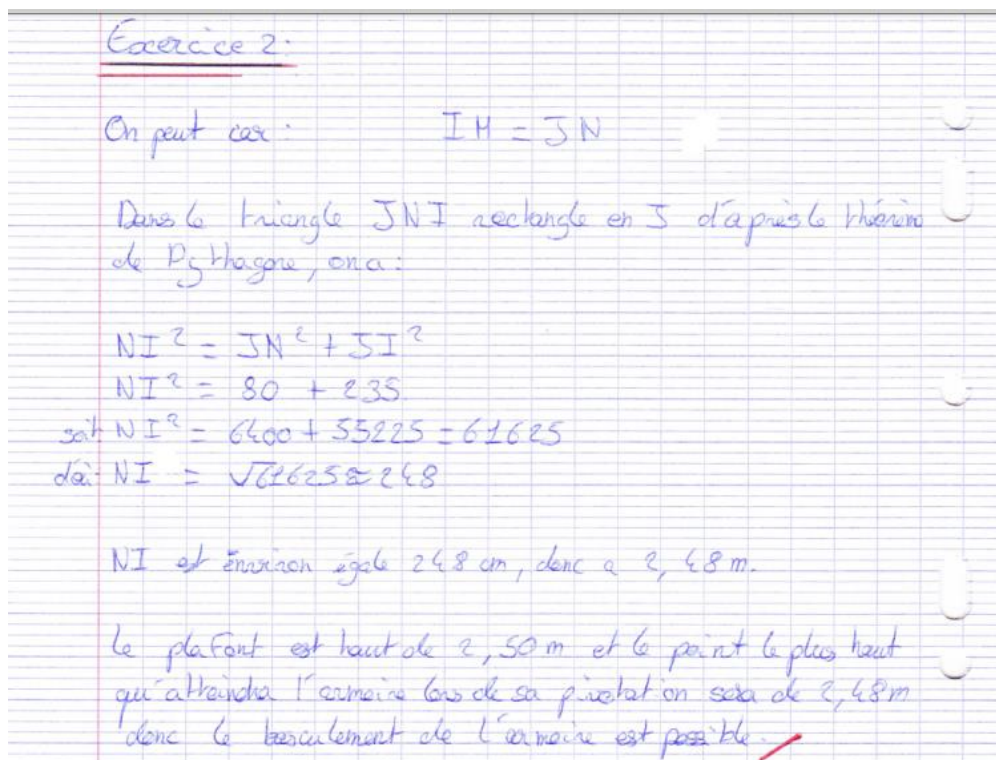 Exercice 2:
On peut car: IM = JN
Dans le triangle JNI rectangle en J d'après le théorème
de Pythagore, on a:
NI² = JN² + JI²
NI² = 80 + 235
soit NI² = 6400 + 55225 = 61625
d'où: NI = √61625 ≈ 248
NI est environ égale 248 cm, donc a 2,48 m.
le plafont est haut de 2,50 m et le point le plus haut
qu'atteindra l'armoire lors de sa pivotation sera de 2,48 m
donc le basculement de l'armoire est possible.